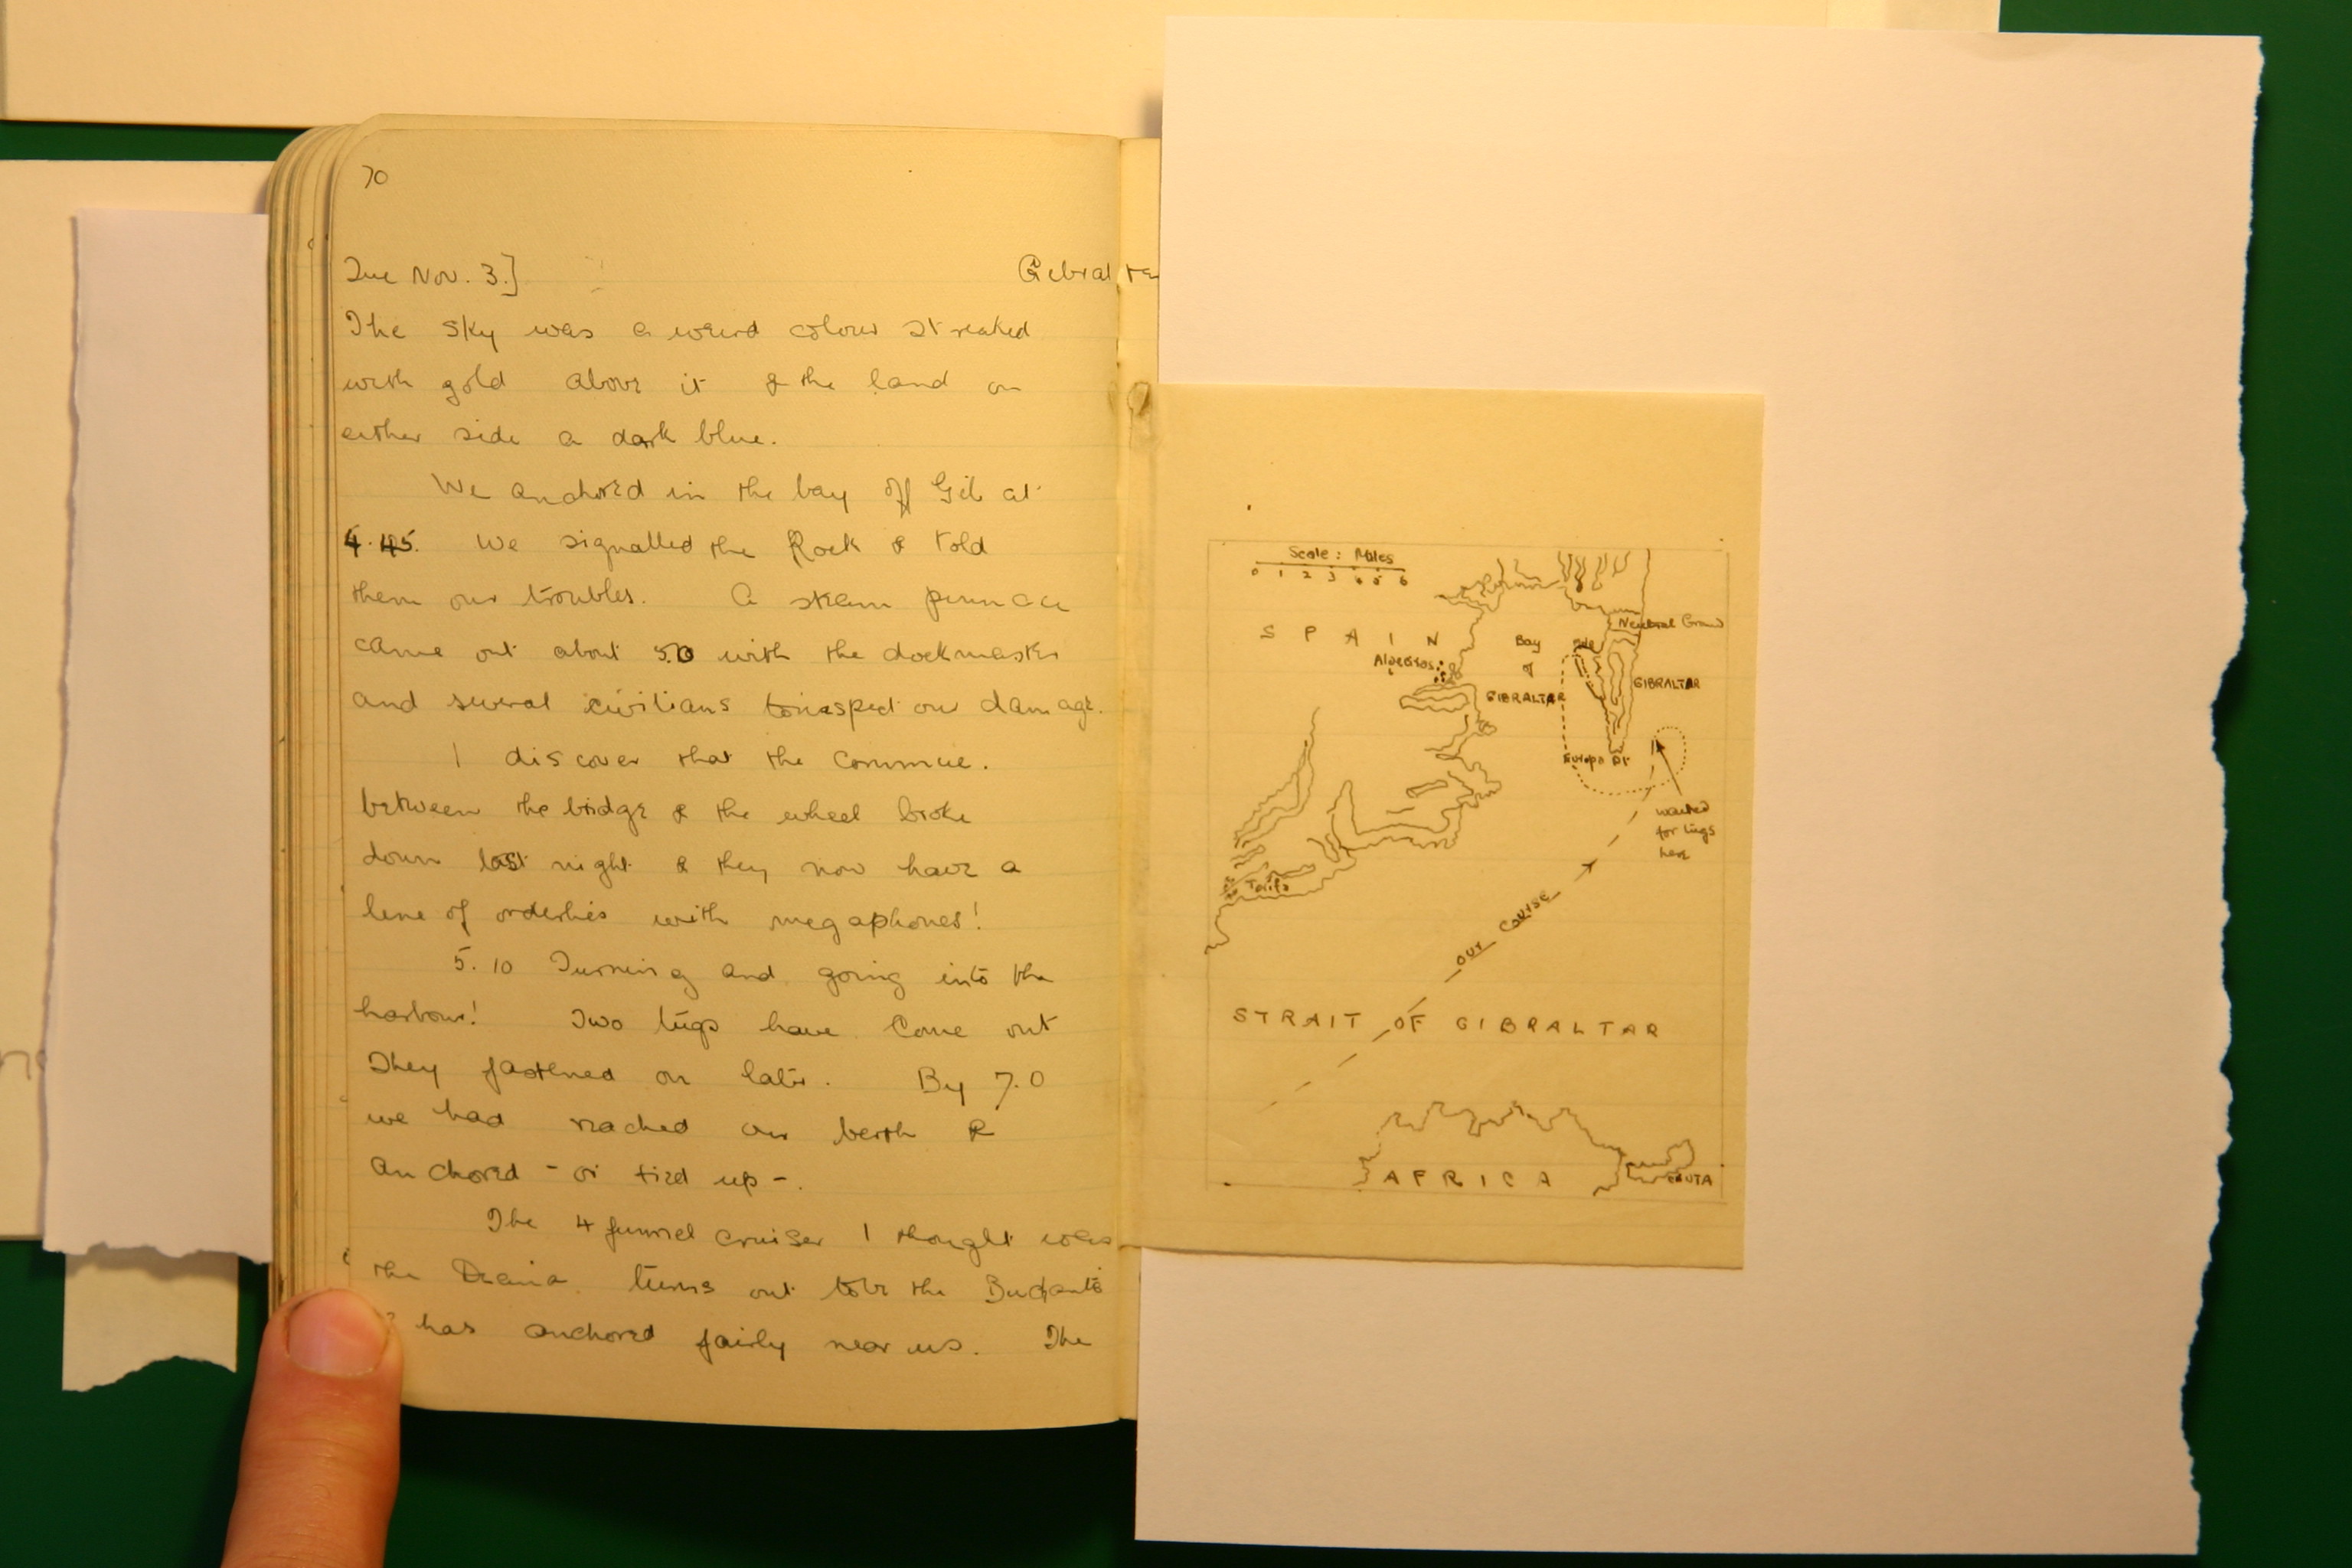 70
Tue Nov. 3.]
Gibralta
The sky was a weird colour streaked
with gold above it & the land on
either side a dark blue.
We anchored in the bay off Gib at
4.45. We signalled the Rock & told
them our troubles. A steam pinnace
came out about 5.0 with the dockmaster
and several civilians to inspect our damage.
I discover that the commue.
between the bridge & the wheel broke
down last night & they now have a
line of orderlies with megaphones!
5.10 Turning and going into the
harbour! Two tugs have come out
They fastened on later. By 7.0
we had reached our berth &
anchored - or tied up -.
The 4 funnel cruiser I thought was
the turns out to be the
& has anchored fairly near us. The
Scale: Miles
0 1 2 3 4 5 6
SPAIN
Neutral Ground
Bay
of
GIBRALTAR
Mole
Algeciras
GIBRALTAR
Europa Pt.
waited
for tugs
here
Tarifa
our course
STRAIT OF GIBRALTAR
AFRICA
CEUTA